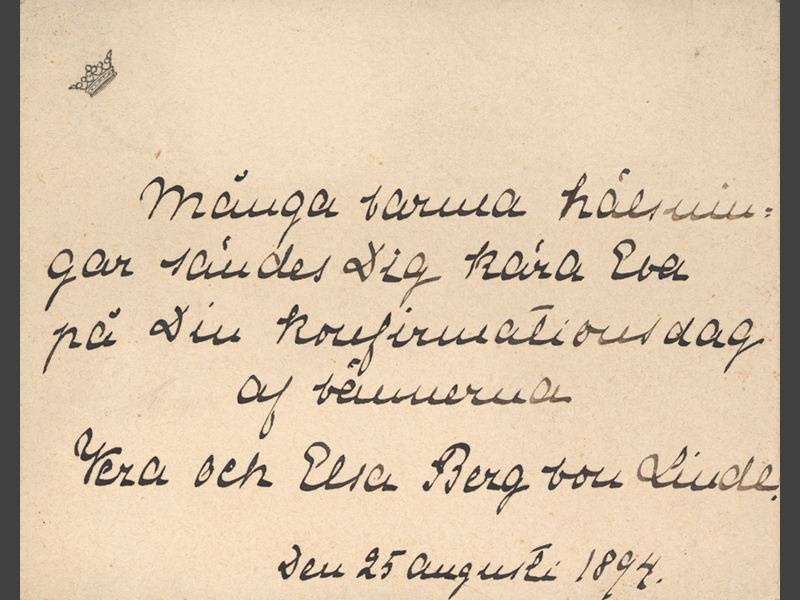 Många varma hälsnin=
gar sändes Dig kära Eva
på Din konfirmationsdag
af vännerna
Vera och Elsa Berg von Linde.
Den 25 augusti 1894.